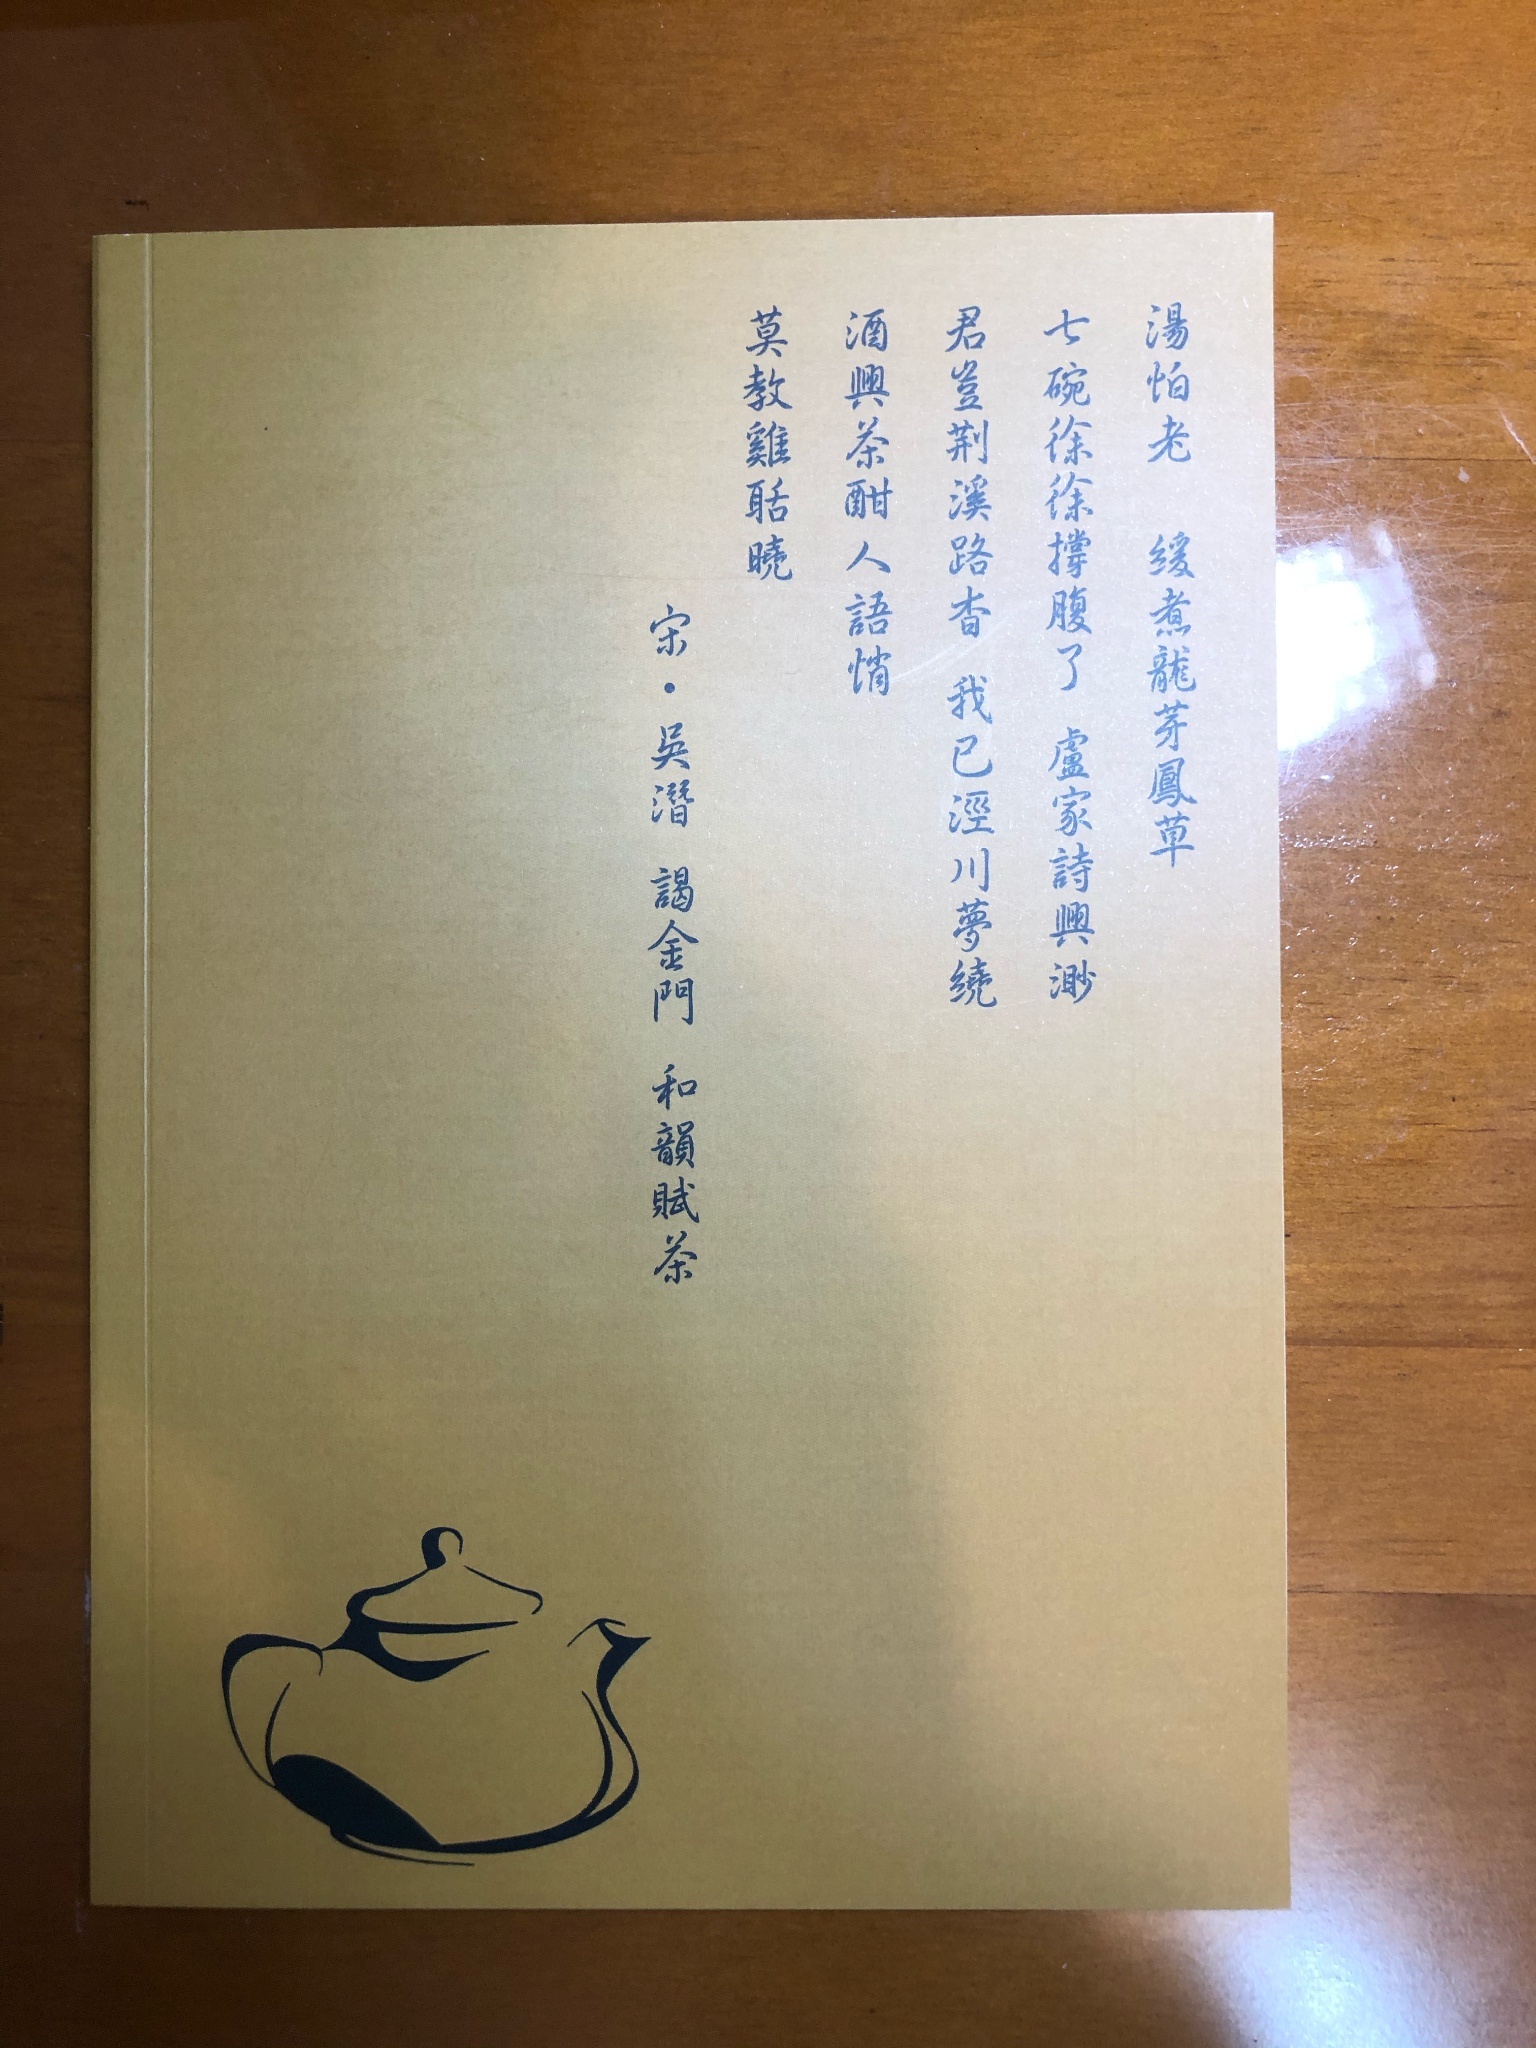 湯怕老 緩煮龍芽鳳草
七碗徐徐撐腹了 盧家詩興渺
君豈荆溪路杳 我已涇川夢繞
酒興茶酣人語悄
莫教雞聒曉
宋・吳潛 謁金門 和韻賦茶